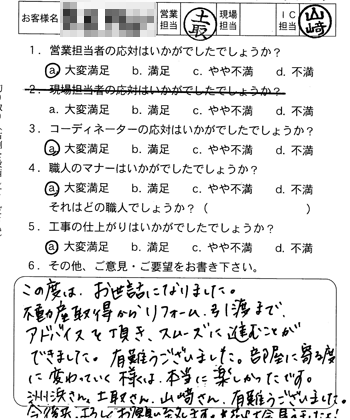 お客様名 営業担当 土取 現場担当 IC担当 山﨑
1. 営業担当者の応対はいかがでしたでしょうか?
a. 大変満足 b. 満足 c. やや不満 d. 不満
2. 現場担当者の応対はいかがでしたでしょうか?
a. 大変満足 b. 満足 c. やや不満 d. 不満
3. コーディネーターの応対はいかがでしたでしょうか?
a. 大変満足 b. 満足 c. やや不満 d. 不満
4. 職人のマナーはいかがでしたでしょうか?
a. 大変満足 b. 満足 c. やや不満 d. 不満
それはどの職人でしょうか?( )
5. 工事の仕上がりはいかがでしたでしょうか?
a. 大変満足 b. 満足 c. やや不満 d. 不満
6. その他、ご意見・ご要望をお書き下さい。
この度は、お世話になりました。
不動産取得からリフォーム、引渡まで、
アドバイスを頂き、スムーズに進むことが
できました。有難うございました。部屋に寄る度
に変わっていく様は、本当に楽しかったです。
洲浜さん、土取さん、山崎さん、有難うございました。
今後共、よろしくお願い致します。